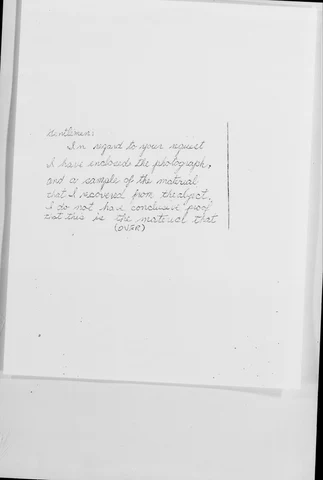 Gentlemen:
In regard to your request
I have enclosed the photograph,
and a sample of the material
that I recovered from the object,
I do not have conclusive proof
that this is the material that
(OVER)